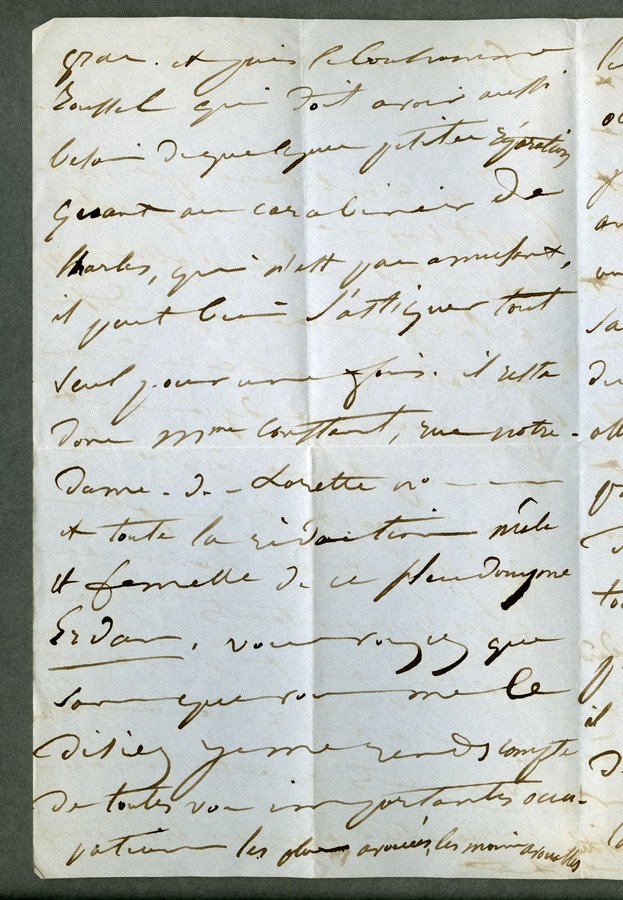 gras. et puis le bonhomme
Roussel qui doit avoir aussi
besoin de quelques petites réparations
Quant au carabinier de
Charles, qui n'est pas amusant,
il peut bien s'astiquer tout
seul pour une fois. il reste
donc Mme Constant, rue notre-
Dame-de-Lorette no
et toute la rédaction mâle
et femelle de ce pseudonyme
Erdan, vous voyez que
sans que vous me le
disiez je me rends compte
de toutes vos importantes occu-
pations les plus avouées, les moins avouables